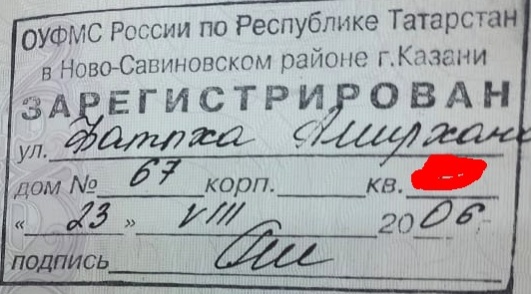 ОУФМС России по Республике Татарстан
в Ново-Савиновском районе г.Казани
ЗАРЕГИСТРИРОВАН
ул. Фатыха Амирхана
дом № 67 корп. кв.
« 23 » VIII 2006
подпись